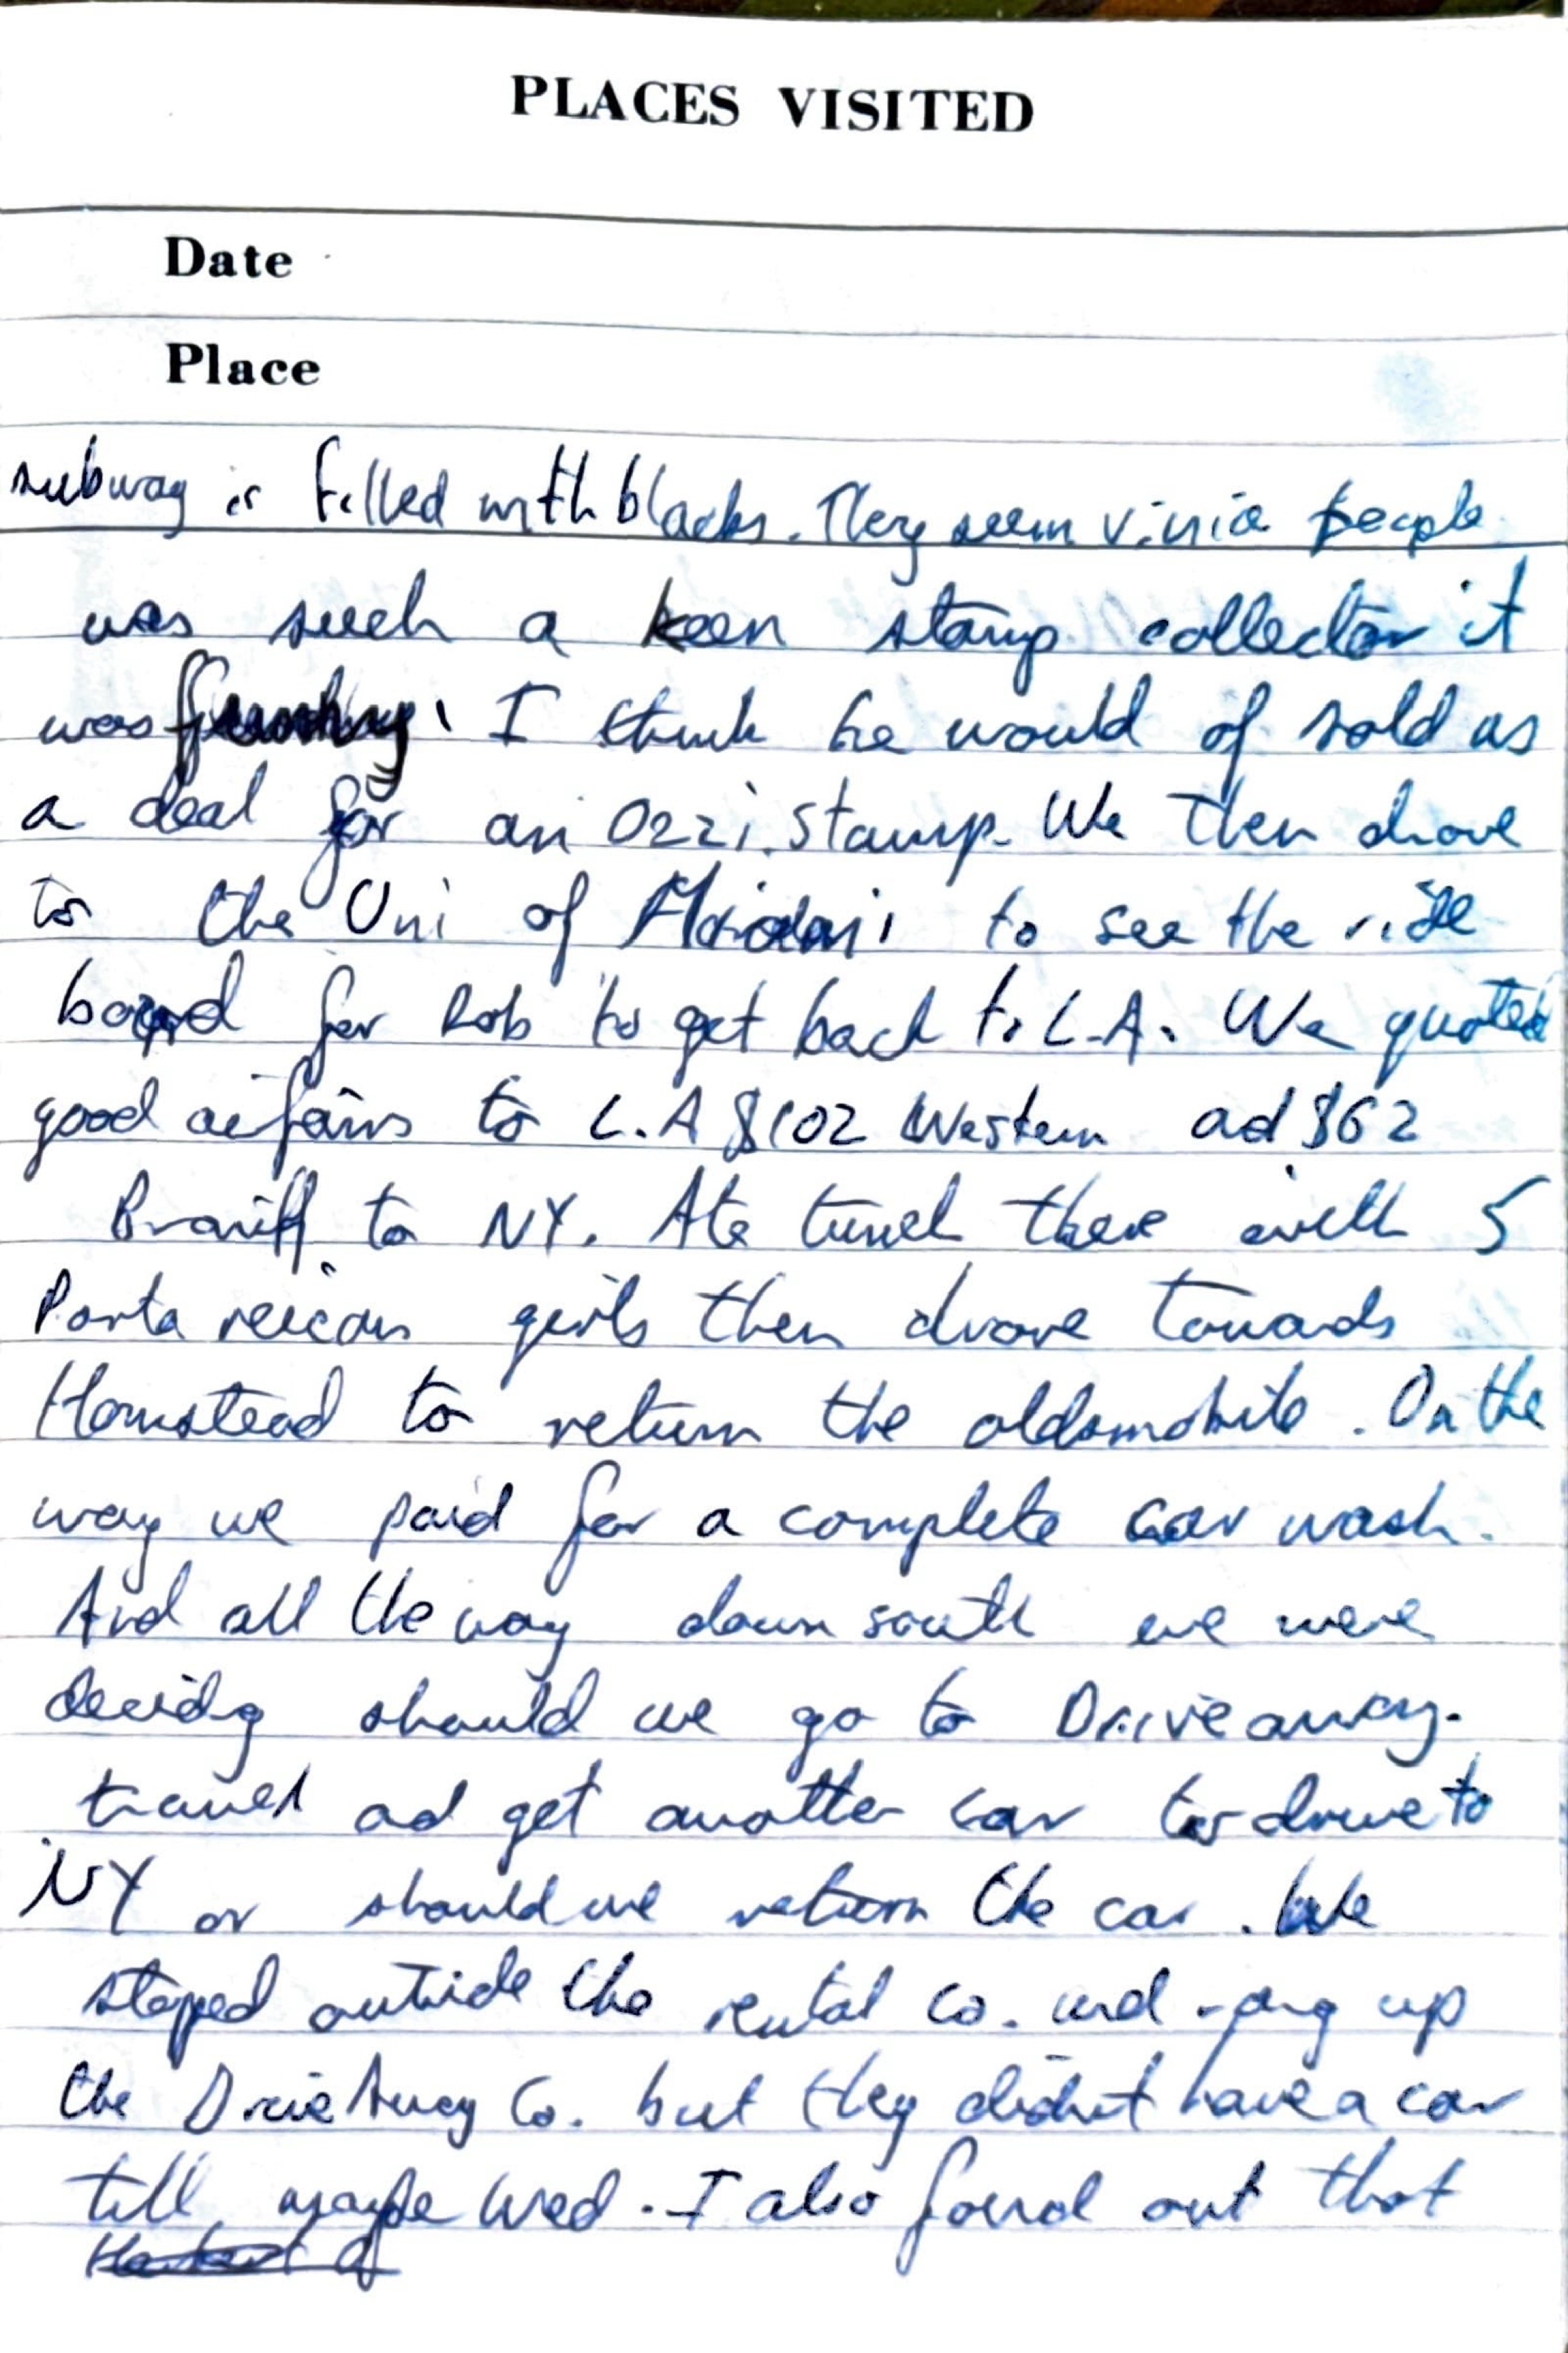 PLACES VISITED
Date
Place
subway is filled with blacks. They seem v. nice people
was such a keen stamp collector it
was funny. I think he would of sold us
a deal for an Ozzi. stamp. We then drove
to the Uni of to see the ride
board for Rob to get back to L.A. We quoted
good airfairs to L.A $102 Western ad $62
Braniff to NY. Ate tunch there with 5
Porta reican girls then drove towards
Homstead to return the oldsmobile. On the
way we paid for a complete car wash.
And all the way down south we were
decidg should we go to Driveaway.
travel ad get another car to drive to
NY or should we return the car. We
stoped outside the rental co. and rang up
the DriveAway Co. but they didnt have a car
till maybe Wed. I also found out that